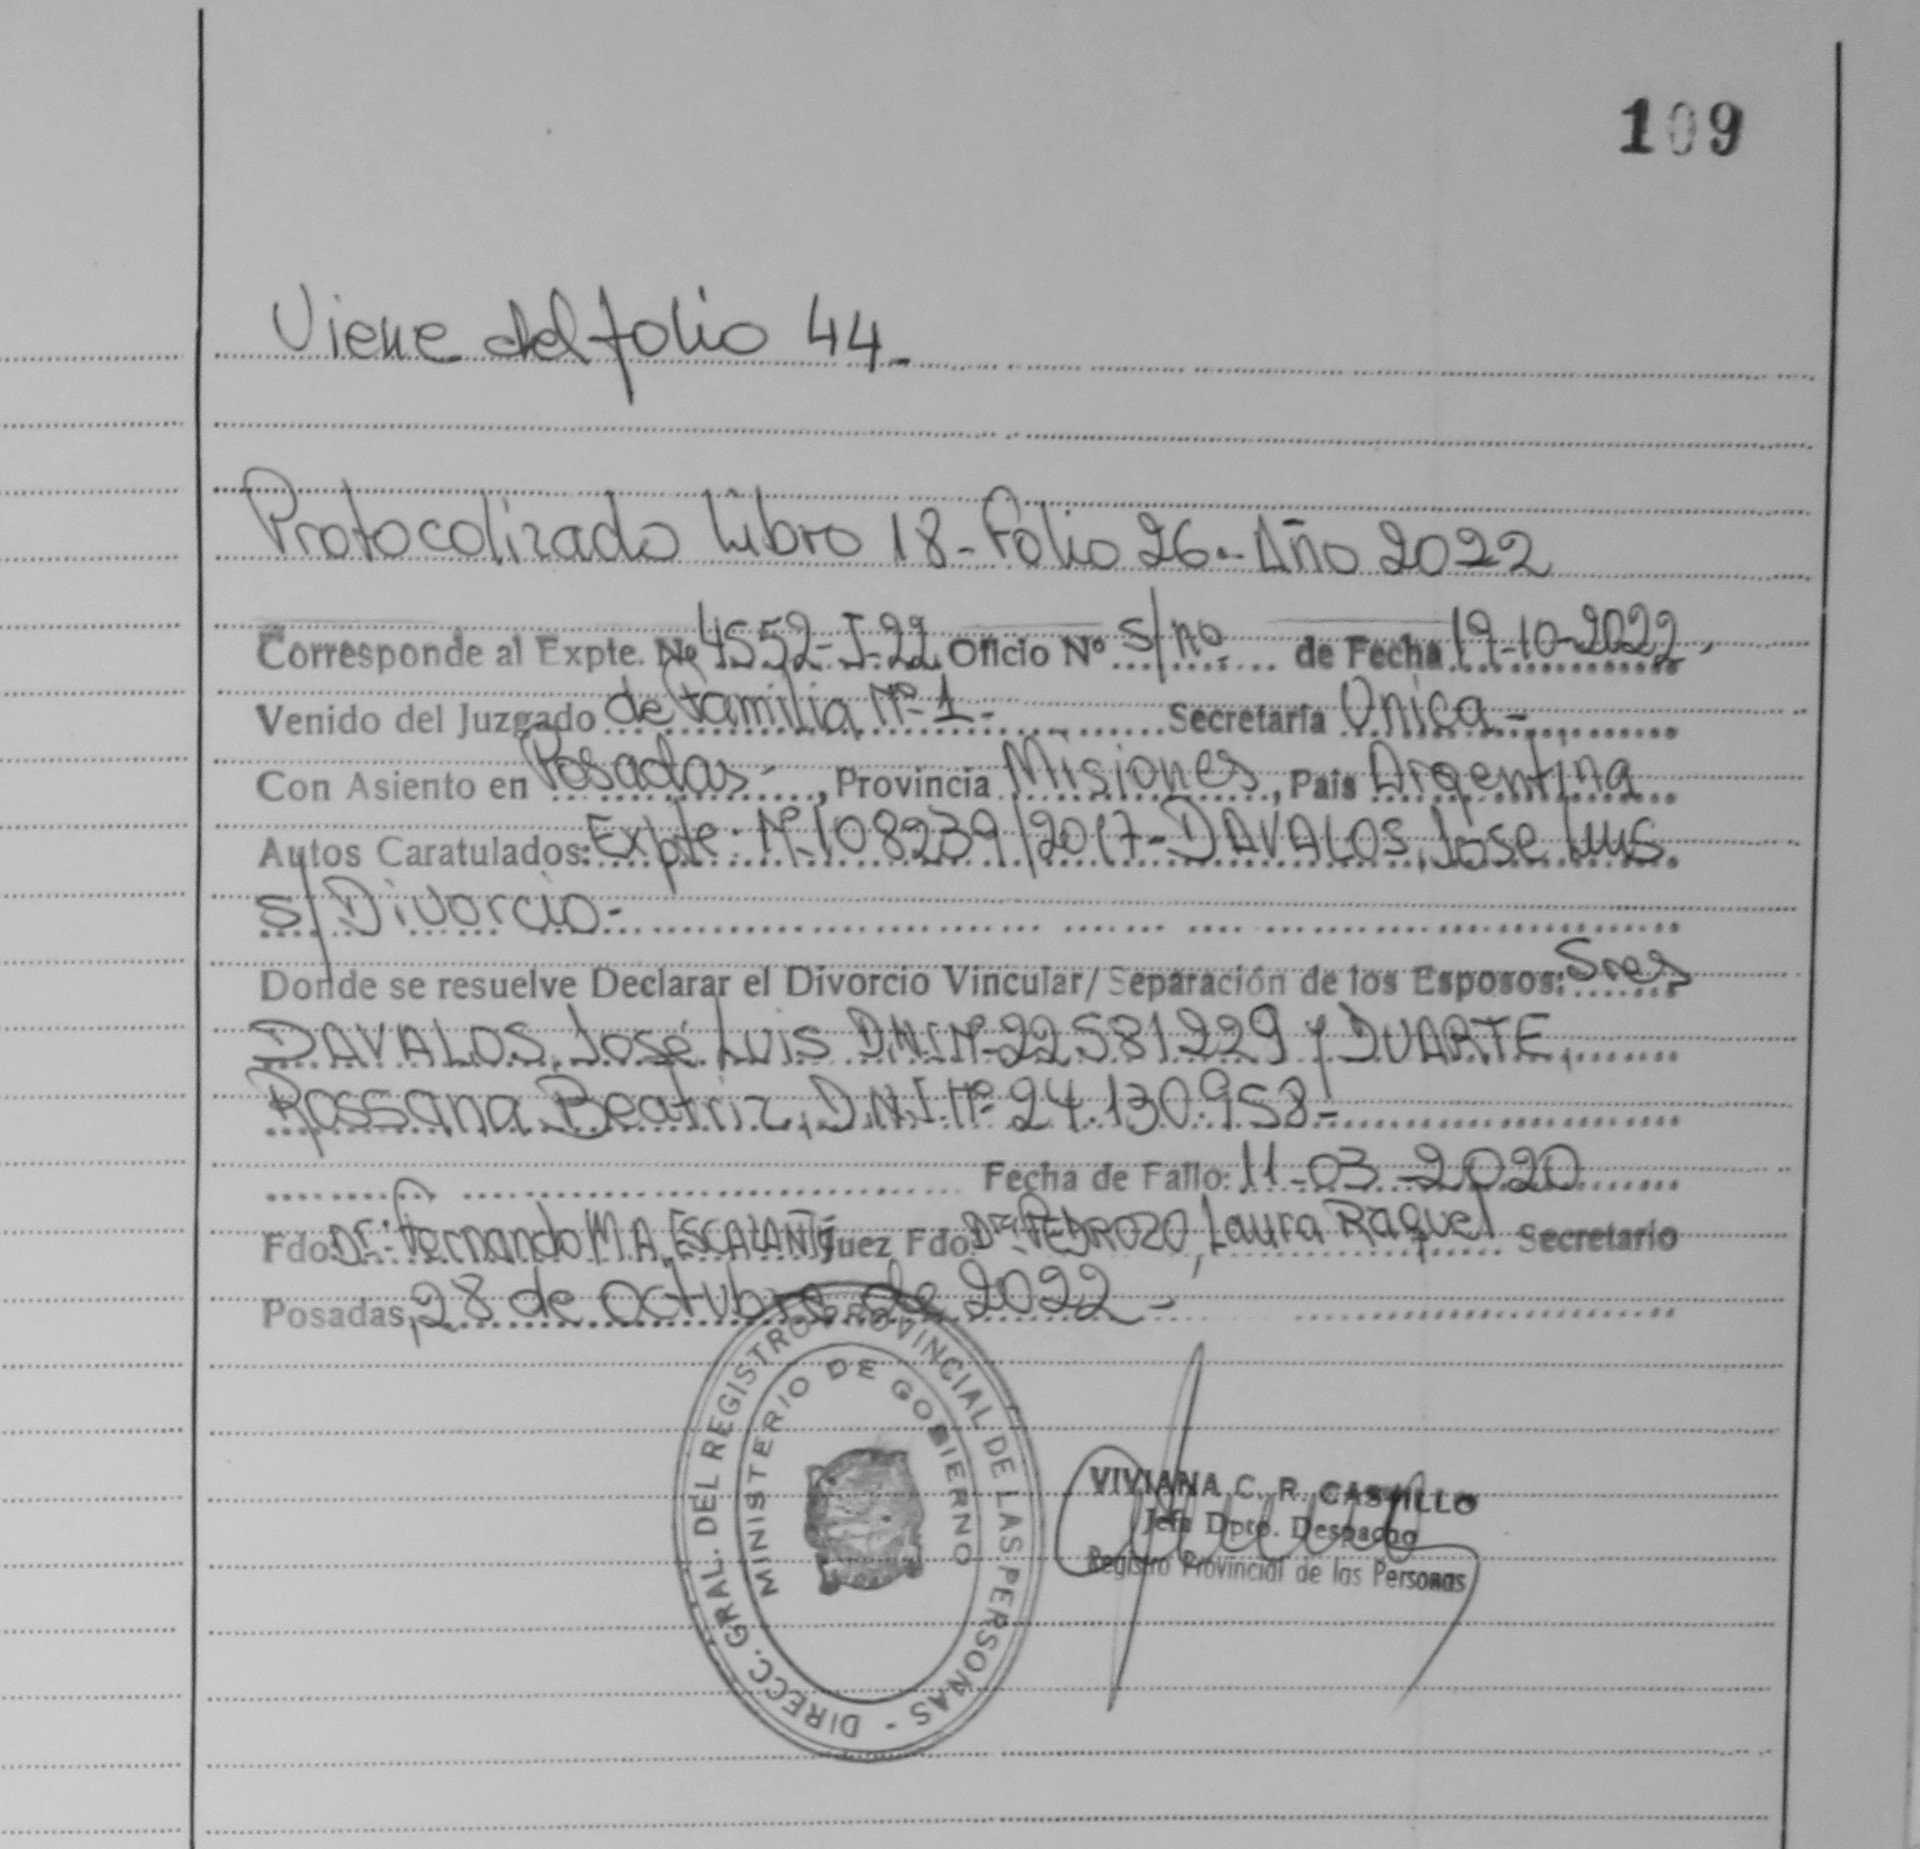 109
Viene del folio 44-
Protocolizado Libro 18-Folio 26-Año 2022
Corresponde al Expte. Nº 4552-I-22 Oficio Nº s/nº de Fecha 19-10-2022.
Venido del Juzgado de familia Nº 1.- Secretaría Única-
Con Asiento en Posadas-, Provincia Misiones, País Argentina
Autos Caratulados: Expte. Nº 108239/2017-DAVALOS, José Luis
s/Divorcio-
Donde se resuelve Declarar el Divorcio Vincular/Separación de los Esposos: Sres
DAVALOS, José Luis D.N.I Nº 22581229 y DUARTE,
Rossana Beatriz, D.N.I Nº 24.130.958-
Fecha de Fallo: 11-03-2020
Fdo: Dr. Fernando M.A. ESCALANTE Juez Fdo: Drª PEDROZO, Laura Raquel Secretario
Posadas, 28 de octubre de 2022-
DIRECC. GRAL. DEL REGISTRO PROVINCIAL DE LAS PERSONAS -
MINISTERIO DE GOBIERNO
VIVIANA C. R. CASTILLO
Jefa Dpto. Despacho
Registro Provincial de las Personas